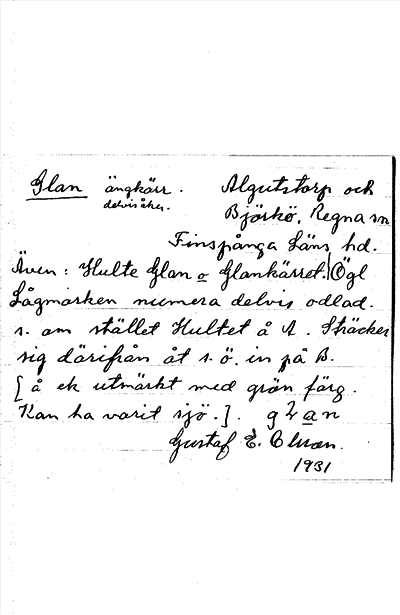 Glan ängkärr. Algutstorp och
delvis åker. Björkö, Regna sn
Finspånga Läns hd.
Även: Hulte Glan o Glankärret. Ögl
Lågmarken numera delvis odlad.
s. om stället Hultet å A. Sträcker
sig därifrån åt s. ö. in på B.
[å ek utmärkt med grön färg.
Kan ha varit sjö.].
Gustaf E.
1931